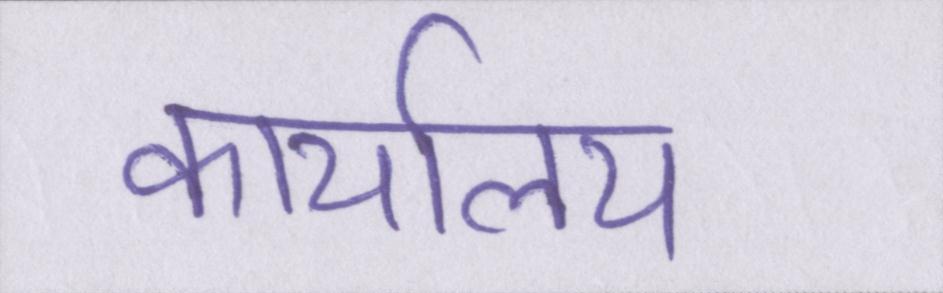 कार्यालय